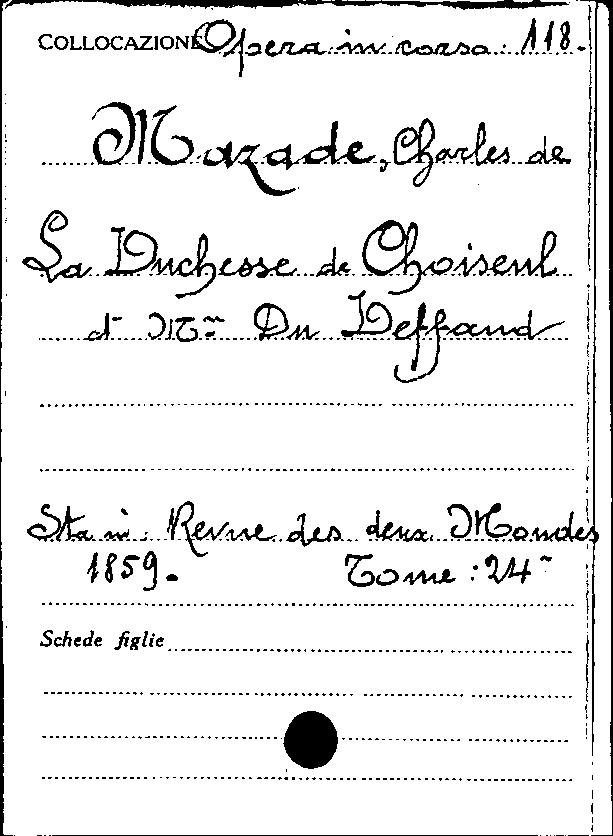 COLLOCAZIONE Opera in corso. 118.
Mazade, Charles de
La Duchesse de Choiseul
et Mme Du Deffand
Sta in: Revue des deux Mondes
1859. Tome: 24
Schede figlie